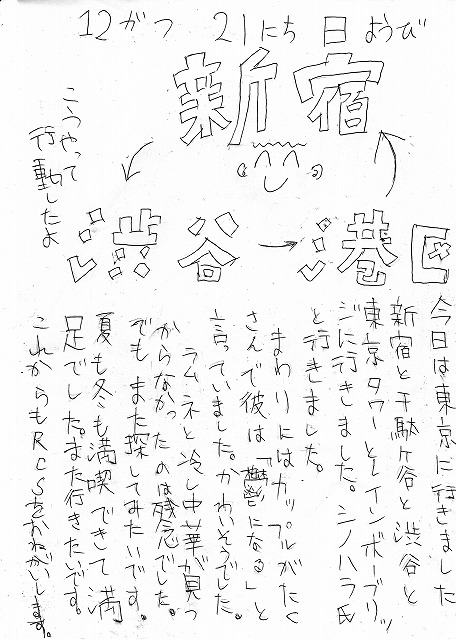 12がつ 21にち 日ようび
新宿
こうやって
行動したよ
渋谷→港区
今日は東京に行きました
新宿と千駄ヶ谷と渋谷と
東京タワーとレインボーブリッ
ジに行きました。シノハラ氏
と行きました。
まわりにはカップルがたく
さんで彼は「鬱になる」と
言っていました。かわいそうでした。
ラムネと冷し中華が見つ
からなかったのは残念でした。
でもまた探してみたいです。
夏も冬も満喫できて満
足でした。また行きたいです。
これからもRCSをおねがいします。